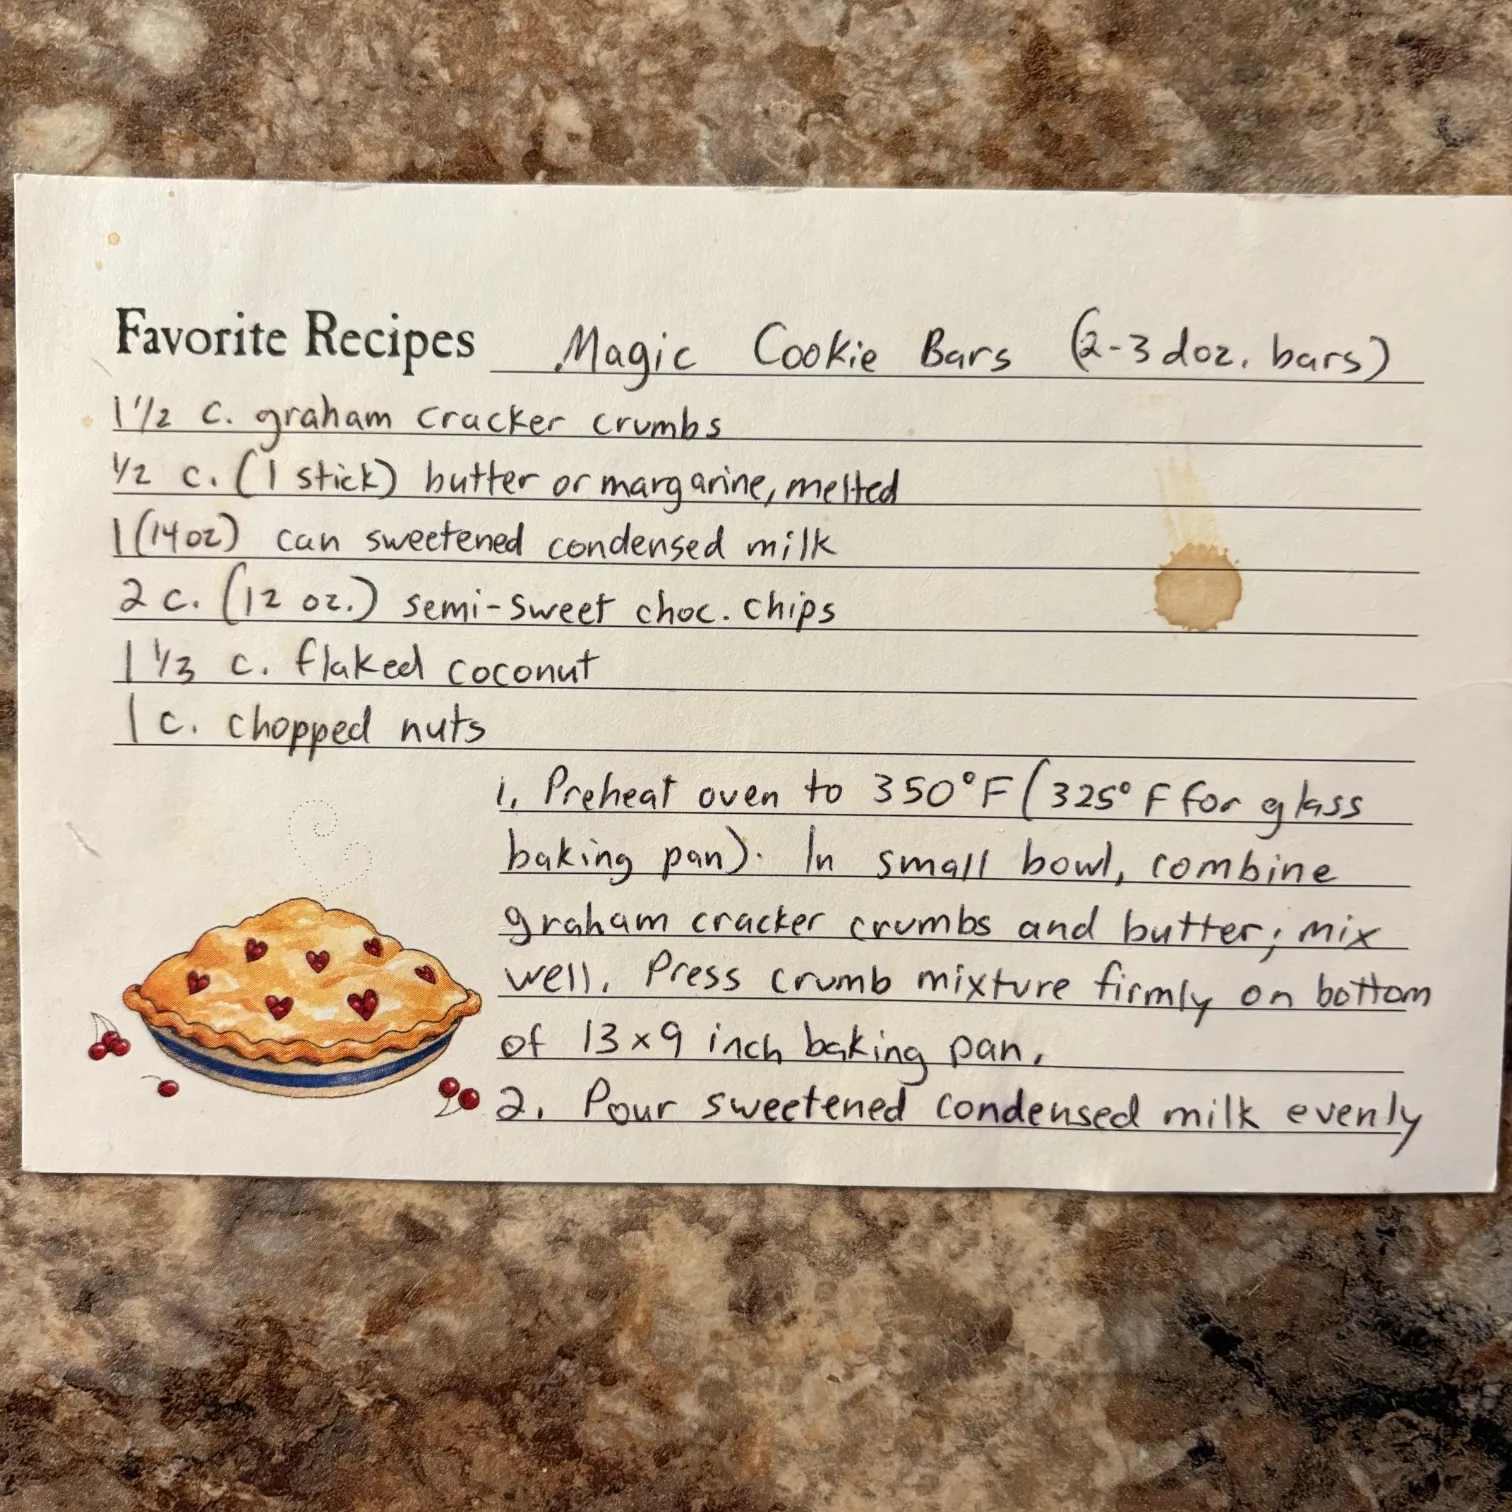 Favorite Recipes Magic Cookie Bars (2-3 doz. bars)
1 1/2 c. graham cracker crumbs
1/2 c. (1 stick) butter or margarine, melted
1 (14 oz) can sweetened condensed milk
2 c. (12 oz.) semi-sweet choc. chips
1 1/3 c. flaked coconut
1 c. chopped nuts
1. Preheat oven to 350°F (325°F for glass
baking pan). In small bowl, combine
graham cracker crumbs and butter; mix
well. Press crumb mixture firmly on bottom
of 13x9 inch baking pan.
2. Pour sweetened condensed milk evenly